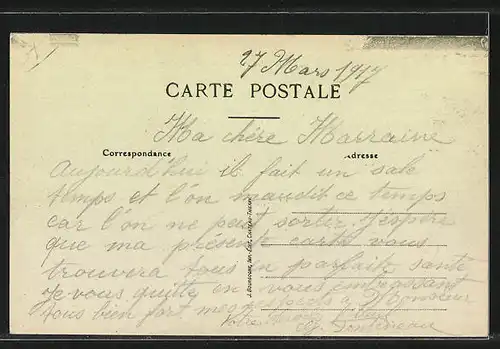 27 Mars 1917
CARTE POSTALE
Ma chère Marraine
Correspondance
Adresse
Aujourd'hui il fait un sale
temps et l'on maudit ce temps
car l'on ne peut sortir J'espère
que ma présente carte vous
trouvera tous en parfaite santé
Je vous quitte en vous embrassant
tous bien fort mes respects à Monsieur
Votre